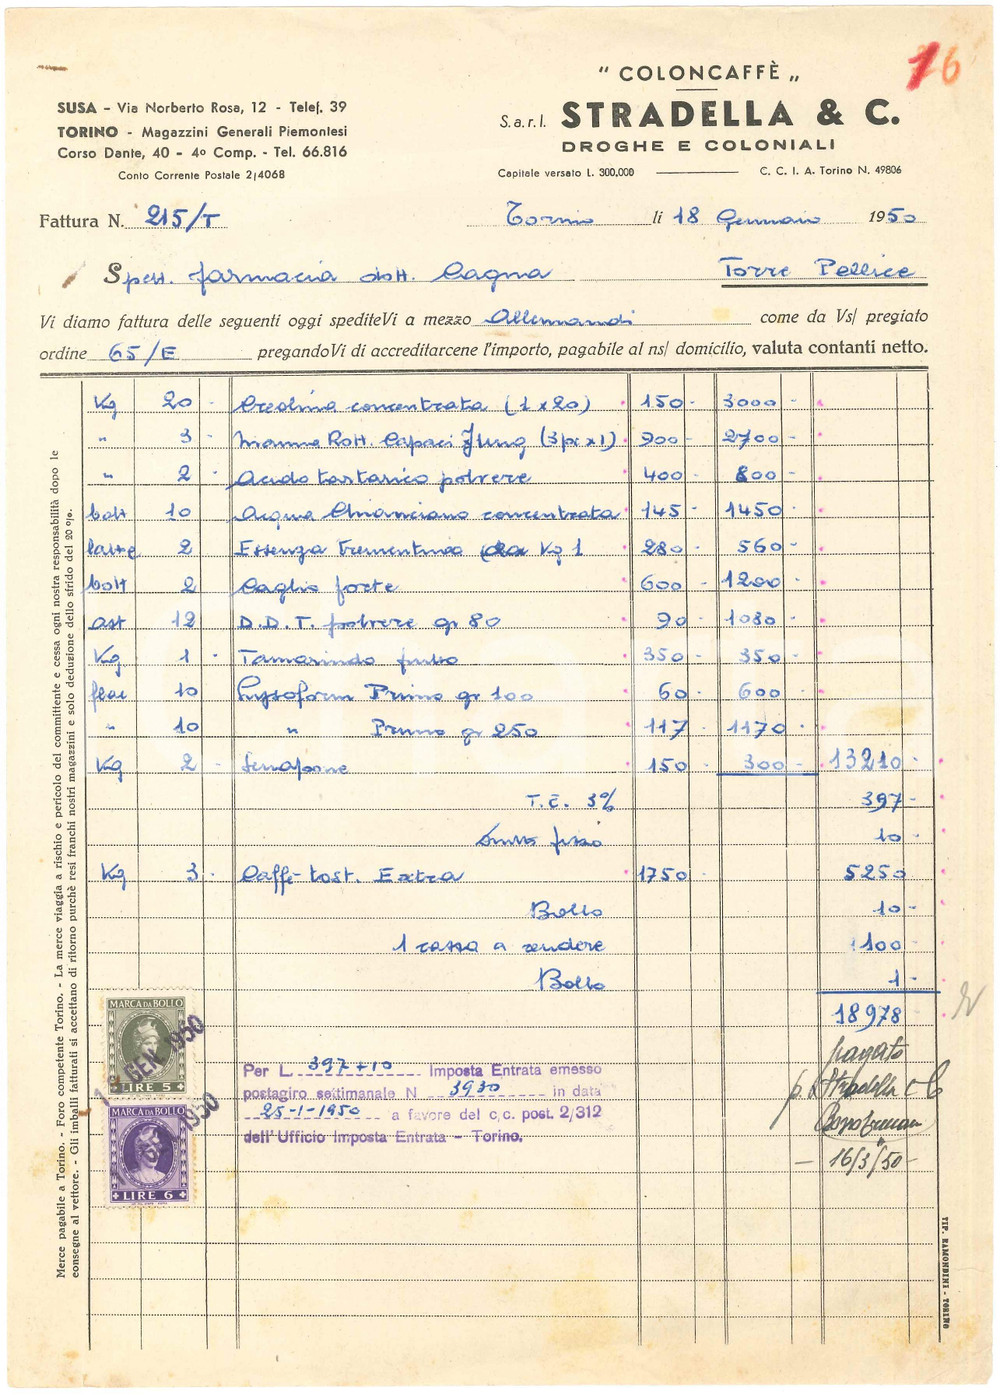 " COLONCAFFÈ „
16
SUSA - Via Norberto Rosa, 12 - Telef. 39
TORINO - Magazzini Generali Piemontesi
Corso Dante, 40 - 4º Comp. - Tel. 66.816
Conto Corrente Postale 2/4068
S.a.r.l. STRADELLA & C.
DROGHE E COLONIALI
Capitale versato L. 300,000 C. C. I. A. Torino N. 49806
Fattura N. 215/T Torino li 18 Gennaio 1950
Spett. farmacia dott. Cagna Torre Pellice
Vi diamo fattura delle seguenti oggi spediteVi a mezzo Allemandi come da Vs/ pregiato
ordine 65/E pregandoVi di accreditarcene l'importo, pagabile al ns/ domicilio, valuta contanti netto.
Kg 20 - Creolina concentrata (1 x 20) 150 - 3000 -
" 3 - Manna Rott. Capaci Jung (3 px x 1) 900 - 2700 -
" 2 - Acido tartarico polvere 400 - 800 -
bott 10 Acqua Chianciano concentrata 145 - 1450 -
latte 2 Essenza Trementina da Kg 1 280 - 560 -
bott 2 Caglio forte 600 - 1200 -
ast 12 D.D.T. polvere gr 80 90 - 1080 -
Kg 1 - Tamarindo 350 - 350 -
flac 10 Lysoform Primo gr 100 60 - 600 -
" 10 " Primo gr 250 117 - 1170 -
Kg 2 - 150 - 300 - 13210 -
T.E. 3% 397 -
fisso 10 -
Kg 3 - Caffè tost. Extra 1750 - 5250
Bollo 10 -
1 cassa a rendere 100 -
Bollo 1 -
18978 -
MARCA DA BOLLO
LIRE 5
GEN 1950
MARCA DA BOLLO
LIRE 6
1950
Per L. 397+10 Imposta Entrata emesso
postagiro settimanale N 3930 in data
25-1-1950 a favore del c,c. post. 2/312
dell'Ufficio Imposta Entrata - Torino.
pagato
p. Stradella & C
16/3/50 -
Merce pagabile a Torino. - Foro competente Torino. - La merce viaggia a rischio e pericolo del committente e cessa ogni nostra responsabilità dopo le
consegne al vettore. - Gli imballi fatturati si accettano di ritorno purchè resi franchi nostri magazzini e solo deduzione dello sfrido del 20 %.
TIP. RAMONDINI - TORINO